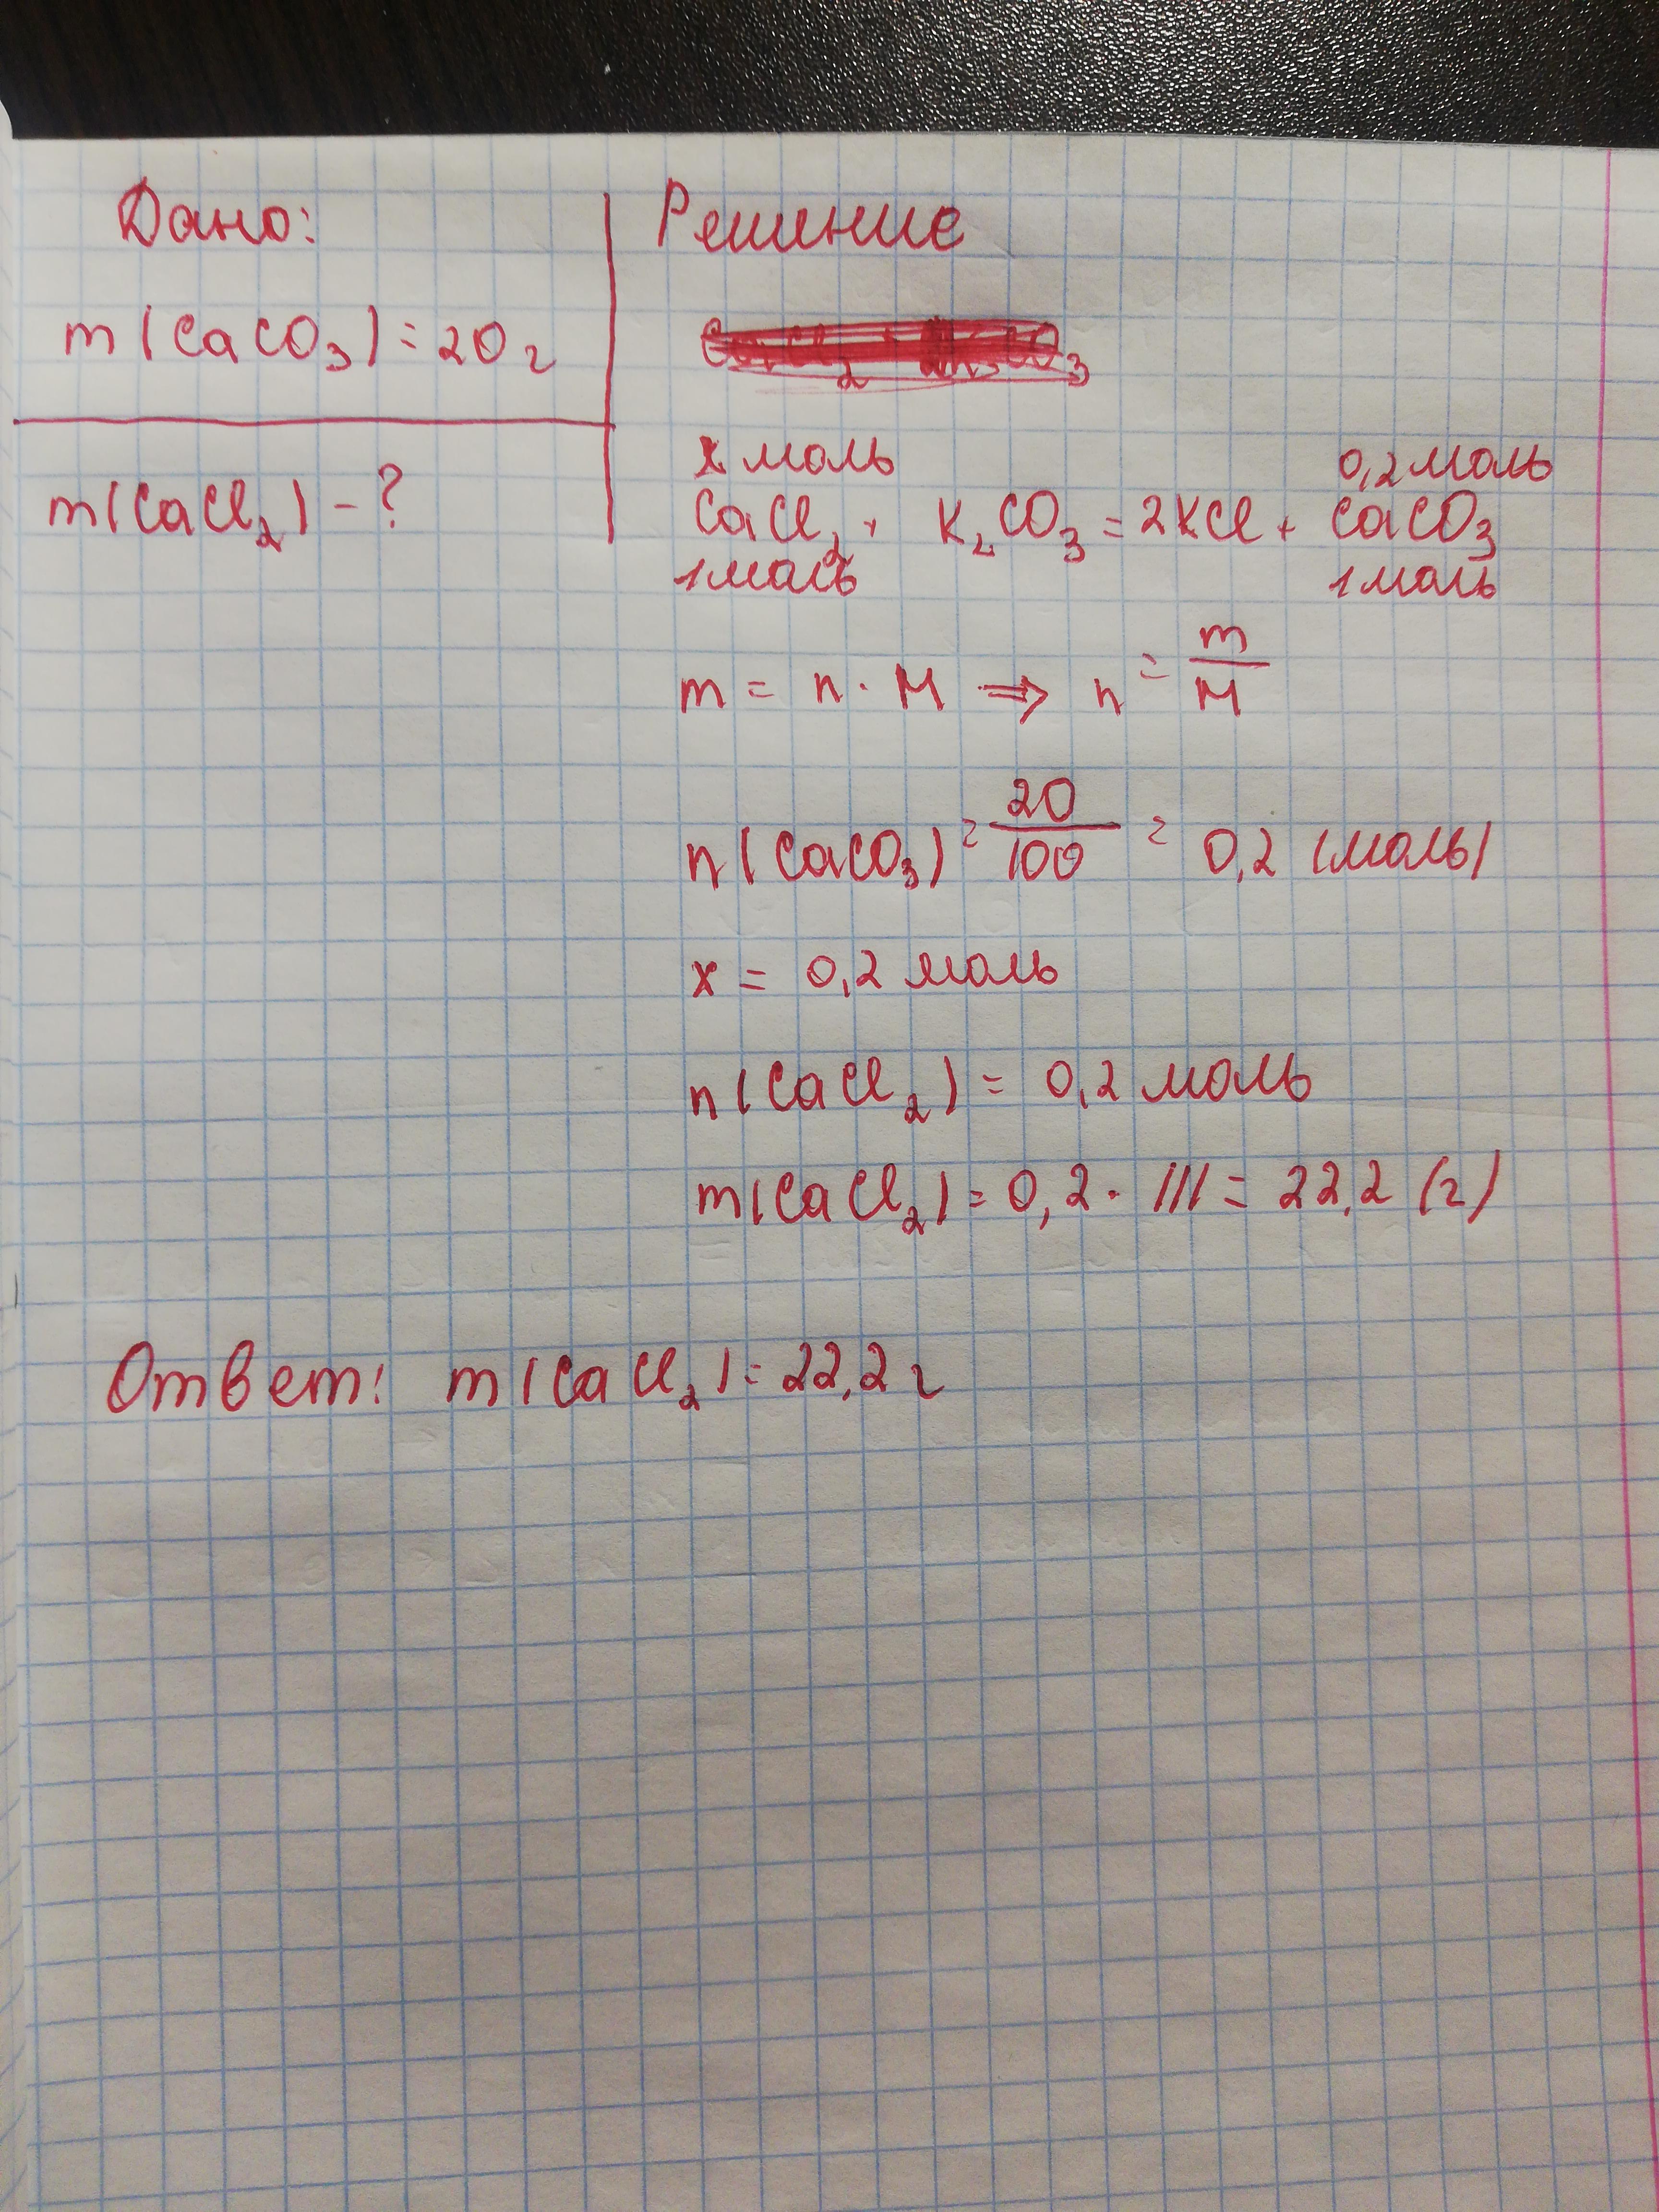 Дано:
m(CaCO₃) = 20 г
m(CaCl₂) - ?
Решение
x моль 0,2 моль
CaCl₂ + K₂CO₃ = 2KCl + CaCO₃
1 моль 1 моль
m = n · M ⇒ n = m/M
n(CaCO₃) = 20/100 = 0,2 (моль)
x = 0,2 моль
n(CaCl₂) = 0,2 моль
m(CaCl₂) = 0,2 · 111 = 22,2 (г)
Ответ: m(CaCl₂) = 22,2 г